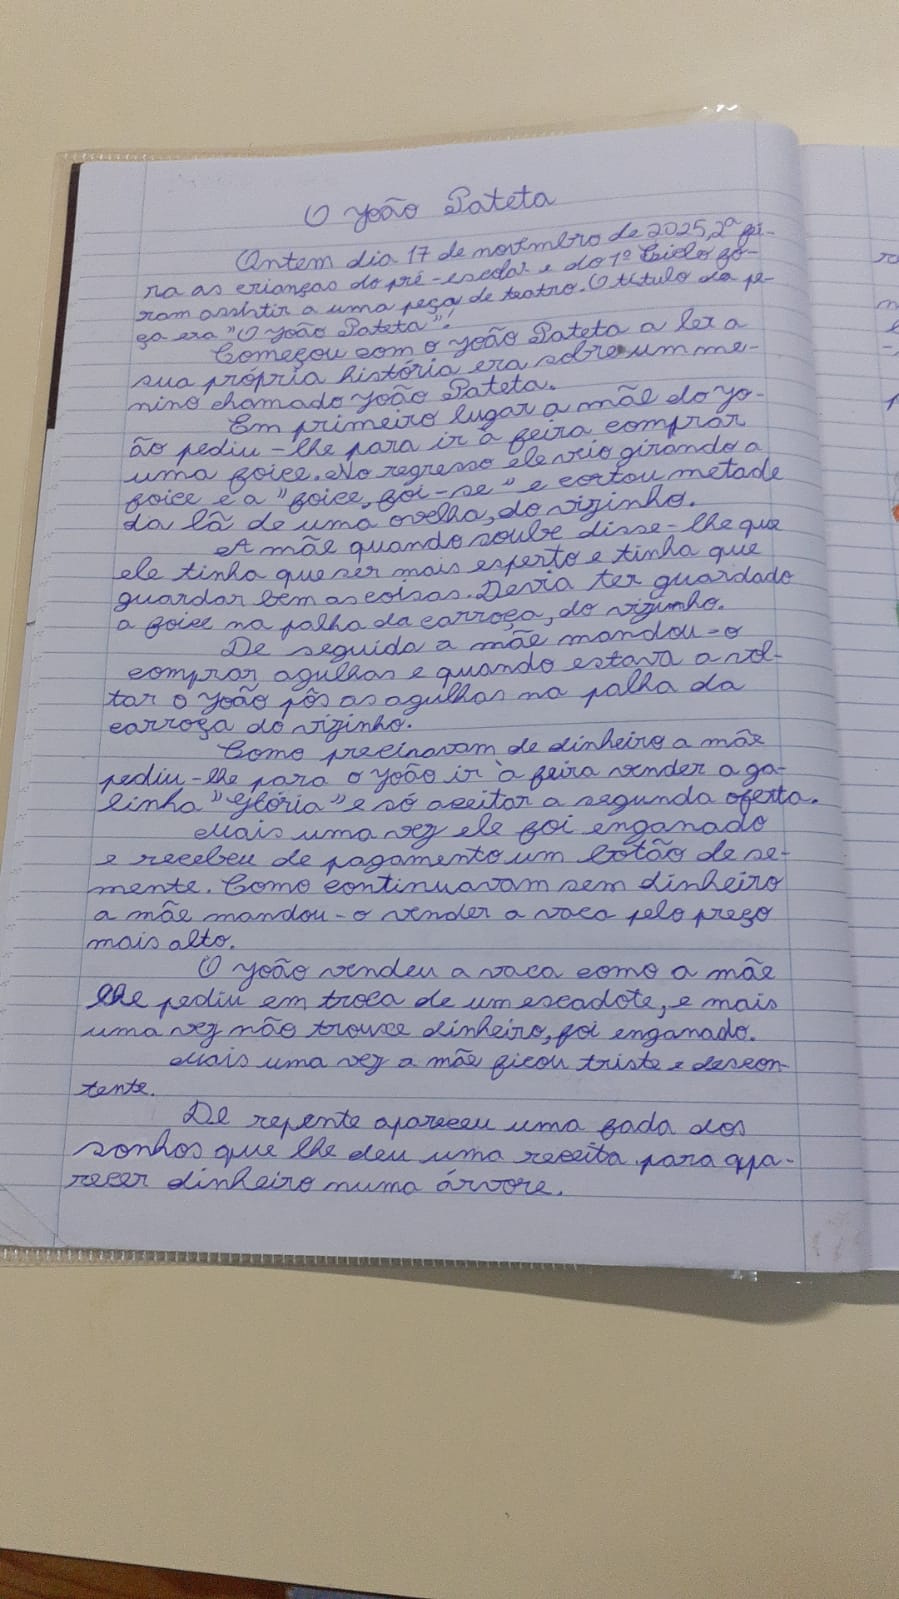 O João Pateta
Ontem dia 17 de novembro de 2025, 2ª fei-
ra as crianças do pré-escolar e do 1º Ciclo fo-
ram assistir a uma peça de teatro. O título da pe-
ça era "O João Pateta"!
Começou com o João Pateta a ler a
sua própria história era sobre um me-
nino chamado João Pateta.
Em primeiro lugar a mãe do Jo-
ão pediu-lhe para ir à feira comprar
uma foice. No regresso ele veio girando a
foice e a "foice, foi-se" e cortou metade
da lã de uma ovelha, do vizinho.
A mãe quando soube disse-lhe que
ele tinha que ser mais esperto e tinha que
guardar bem as coisas. Devia ter guardado
a foice na palha da carroça, do vizinho.
De seguida a mãe mandou-o
comprar agulhas e quando estava a vol-
tar o João pôs as agulhas na palha da
carroça do vizinho.
Como precisavam de dinheiro a mãe
pediu-lhe para o João ir à feira vender a ga-
linha "Glória" e só aceitar a segunda oferta.
Mais uma vez ele foi enganado
e recebeu de pagamento um botão de se-
mente. Como continuavam sem dinheiro
a mãe mandou-o vender a vaca pelo preço
mais alto.
O João vendeu a vaca como a mãe
lhe pediu em troca de um escadote, e mais
uma vez não trouxe dinheiro, foi enganado.
Mais uma vez a mãe ficou triste e descon-
tente.
De repente apareceu uma fada dos
sonhos que lhe deu uma receita para apa-
recer dinheiro numa árvore.